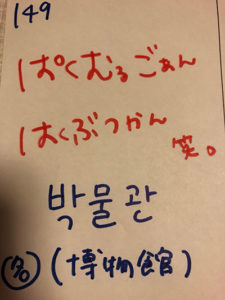 149
ぱくむるごぁん
はくぶつかん
笑。
박물관
(名)(博物館)